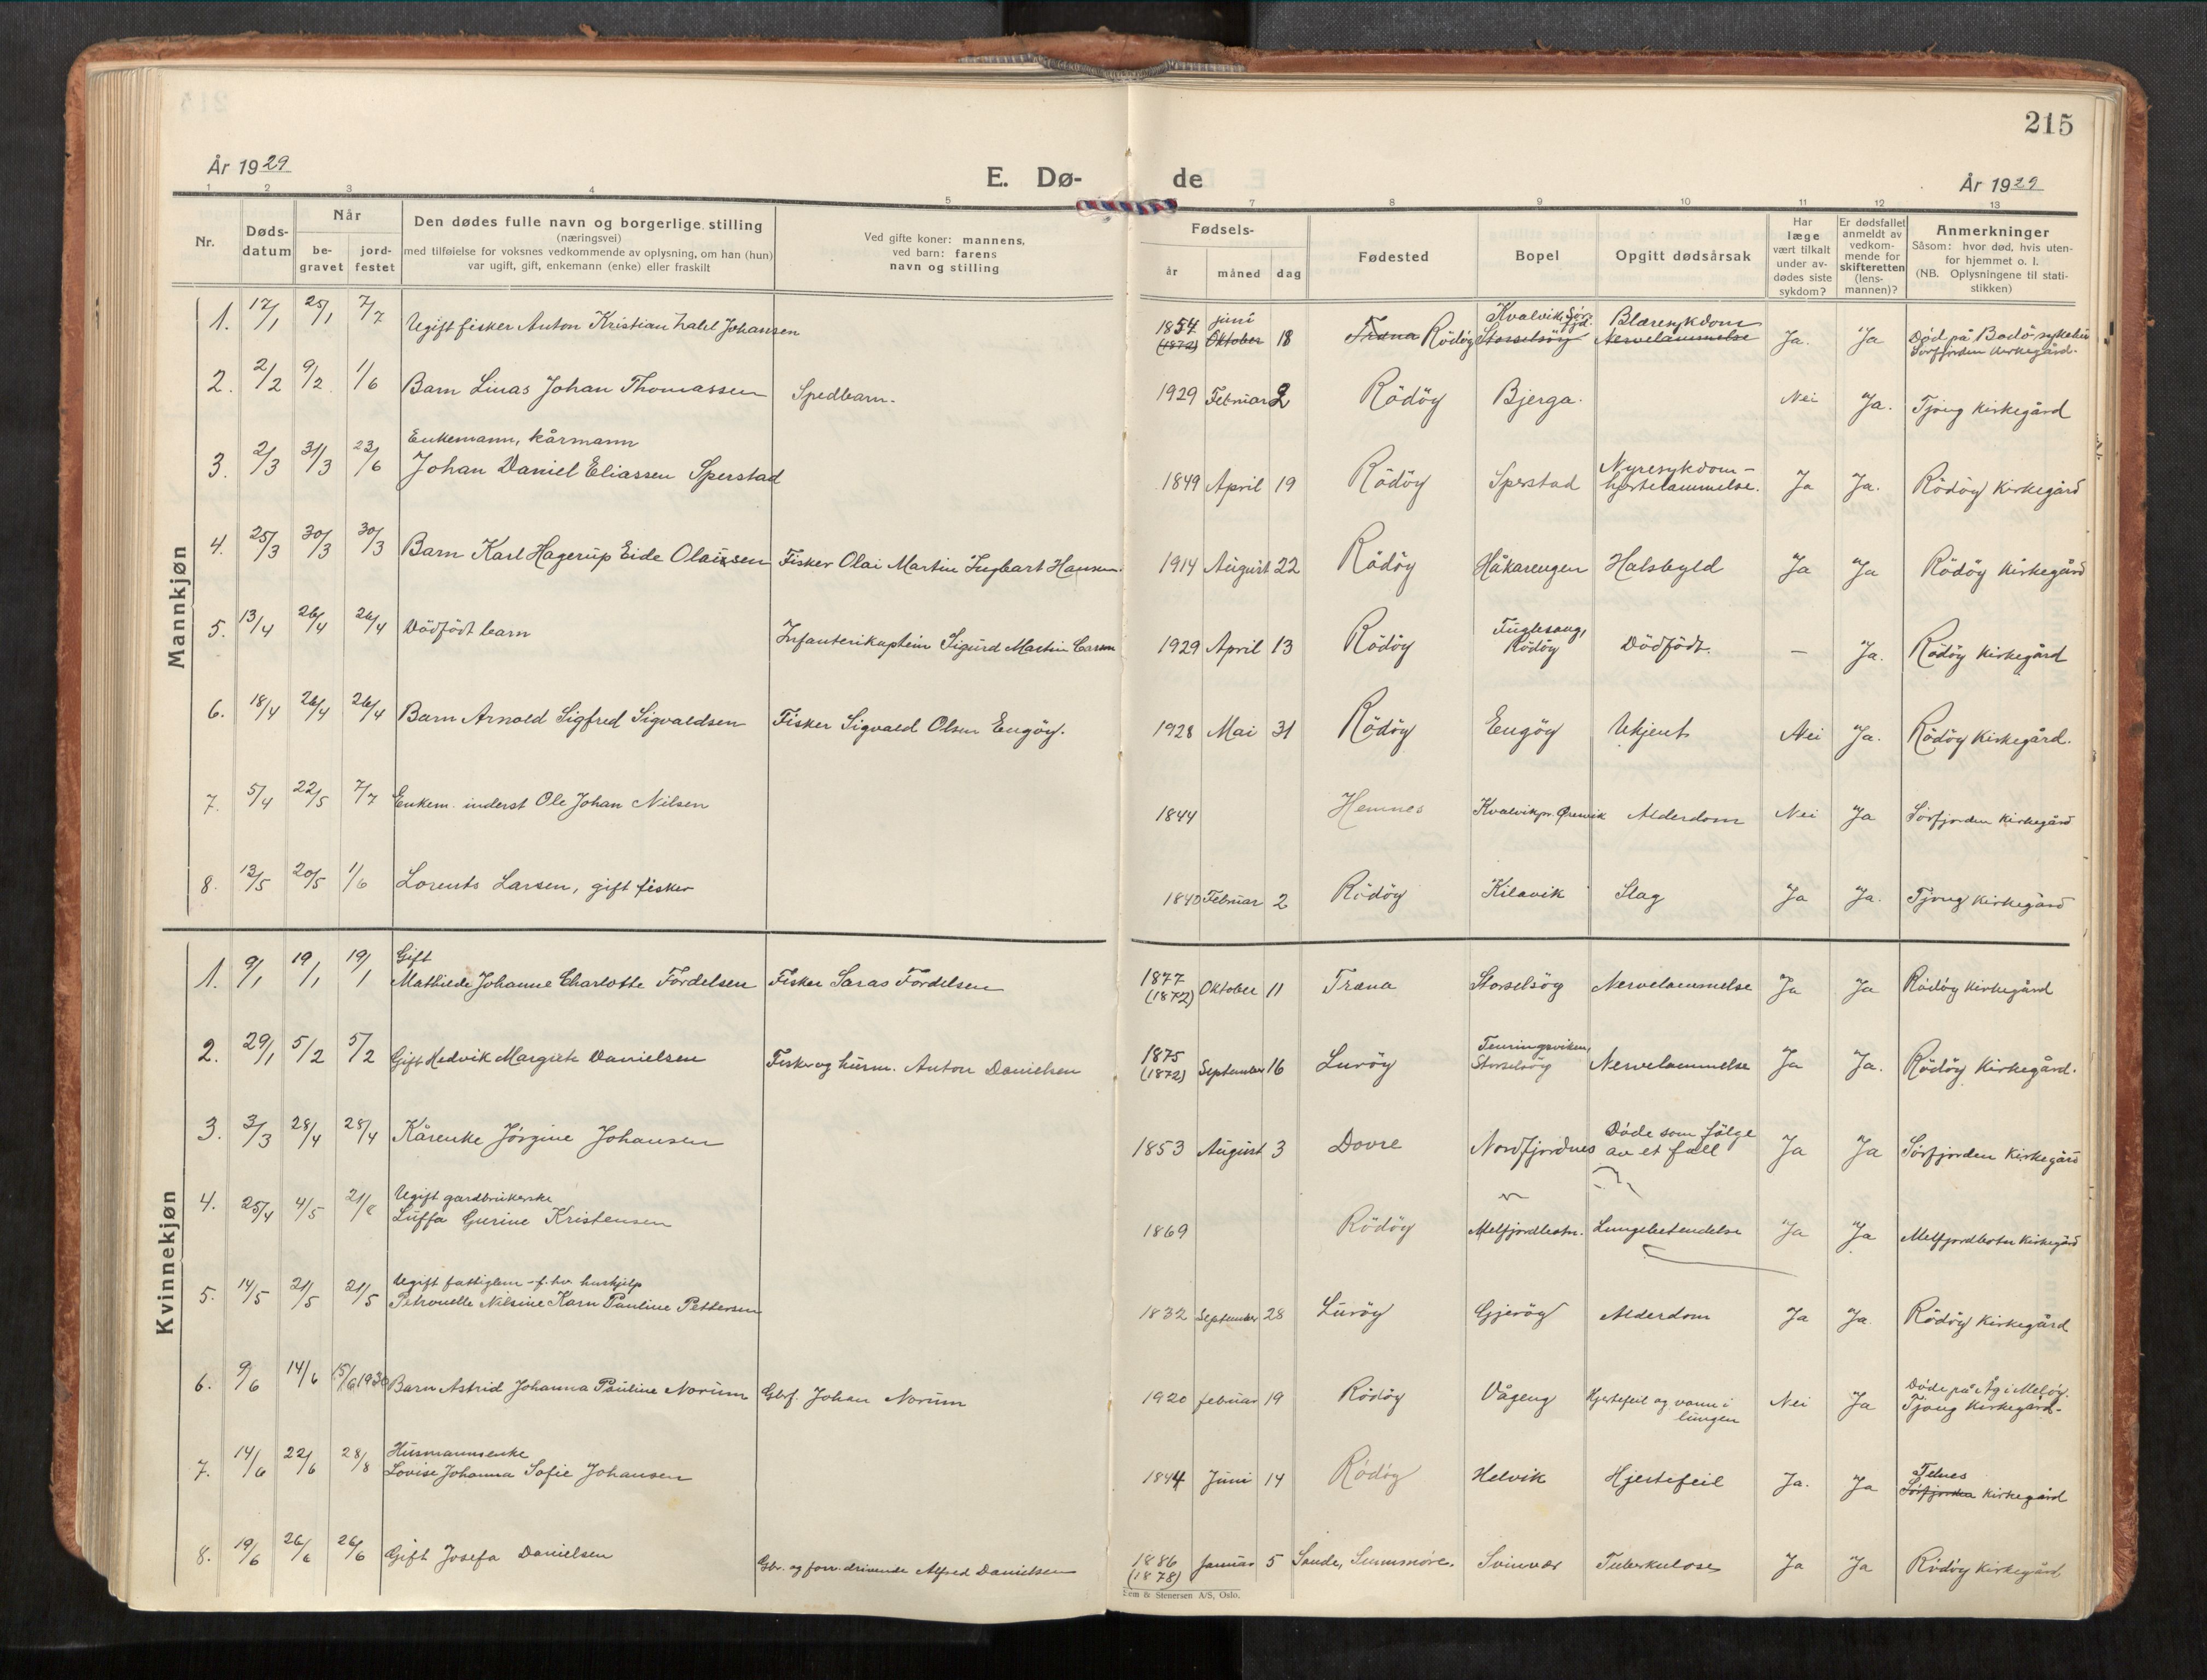 215
År 1929
E. Dø-
de
År 1929
1 2 3 4 5 7 8 9 10 11 12 13
Nr.
Døds-
datum
Når
be-
gravet
jord-
festet
Den dødes fulle navn og borgerlige stilling
(næringsvei)
med tilføielse for voksnes vedkommende av oplysning, om han (hun)
var ugift, gift, enkemann (enke) eller fraskilt
Ved gifte koner: mannens,
ved barn: farens
navn og stilling
Fødsels-
år måned dag
Fødested
Bopel
Opgitt dødsårsak
Har
læge
vært tilkalt
under av-
dødes siste
sykdom?
Er dødsfallet
anmeldt av
vedkom-
mende for
skifteretten
(lens-
mannen)?
Anmerkninger
Såsom: hvor død, hvis uten-
for hjemmet o. l.
(NB. Oplysningene til stati-
stikken)
Mannkjøn
1. 17/1 25/1 7/7 Ugift fisker Anton Kristian Johansen
1854 juni Kvalvik Sør- Blæresykdom
(1872) Oktober 18 Træna Rödöy Storselsöy Nervelammelse Ja. Ja Død på Bodö sykehus
Sörfjorden kirkegård.
2. 2/2 9/2 1/6 Barn Linas Johan Thomassen Spedbarn. 1929 Februar 2 Rödöy Bjerga. Nei Ja. Tjong kirkegård
Enkemann, kårmann
3. 2/3 31/3 23/6 Johan Daniel Eliassen Sperstad 1849 April 19 Rödöy Sperstad Nyresykdom -
hjertelammelse. Ja Ja. Rödöy kirkegård
4. 25/3 30/3 30/3 Barn Karl Hagerup Eide Olaisen Fisker Olai Martin Ingbart Hansen. 1914 August 22 Rödöy Håkarengen Halsbyld Ja Ja Rödöy kirkegård
5. 13/4 26/4 26/4 Dödfödt barn Infanterikaptein Sigurd Martin 1929 April 13 Rödöy Fuglesang,
Rödöy Dödfödt. — Ja. Rödöy kirkegård
6. 18/4 26/4 26/4 Barn Arnold Sigfred Sigvaldsen Fisker Sigvald Olsen Engöy. 1928 Mai 31 Rödöy Engöy Ukjent Nei Ja. Rödöy kirkegård.
7. 5/4 22/5 7/7 Enkem. inderst Ole Johan Nilsen 1844 Hemnes Kvalvik pr. Øresvik Alderdom Nei Ja Sörfjorden kirkegård
8. 12/5 20/5 1/6 Lorents Larsen, gift fisker 1840 Februar 2 Rödöy Kilavik Slag Ja Ja. Tjong kirkegård
Kvinnekjøn
Gift
1. 9/1 19/1 19/1 Mathilde Johanne Charlotte Fordelsen Fisker Saras Fordelsen 1877
(1872) Oktober 11 Træna Storselsöy Nervelammelse Ja Ja Rödöy kirkegård
2. 29/1 5/2 5/2 Gift Hedvik Margrete Danielsen Fisker og husm. Anton Danielsen 1875
(1872) September 16 Luröy Storselsöy Nervelammelse Ja Ja. Rödöy kirkegård.
3. 3/3 28/4 28/4 Kårenke Jörgine Johansen 1853 August 3 Dovre Nordfjordnes Döde som fölge
av et fall Ja Ja Sörfjorden kirkegård
Ugift gardbrukerske
4. 25/4 4/5 21/8 Luffa Gurine Kristensen 1869 Rödöy Melfjordbotn. Lungebetendelse Ja Ja Melfjordbotn kirkegård
Ugift fattiglem - f.hv. hushjelp
5. 14/5 21/5 21/5 Petronelle Nilsine Karn Pauline Pettersen 1832 September 28 Luröy Gjeröy Alderdom Ja Ja Rödöy kirkegård
6. 9/6 14/6 15/6 1930 Barn Astrid Johanna Pauline Norum Gbf. Johan Norum 1920 februar 19 Rödöy Vågeng Hjertefeil og vann i
lungen Nei Ja Döde på Åg i Melöy.
Tjong kirkegård.
Husmannsenke
7. 14/6 22/6 28/8 Lovise Johanna Sofie Johansen 1844 Juni 14 Rödöy Helvik Hjertefeil Ja. Ja Telnes
Sörfjorden kirkegård
8. 19/6 26/6 26/6 Gift Josefa Danielsen Gbr. og forr.drivende Alfred Danielsen 1886
(1878) Januar 5 Sande, Sunnmöre. Svinvær Tuberkulose Ja Ja Rödöy kirkegård
Lem & Stenersen A/S, Oslo.